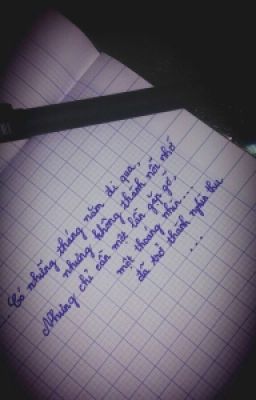 Có những tháng năm đi qua,
nhưng không thành nỗi nhớ
Nhưng chỉ cần một lần gặp gỡ,
một thoáng nhìn...
đã trở thành nghìn thu
...